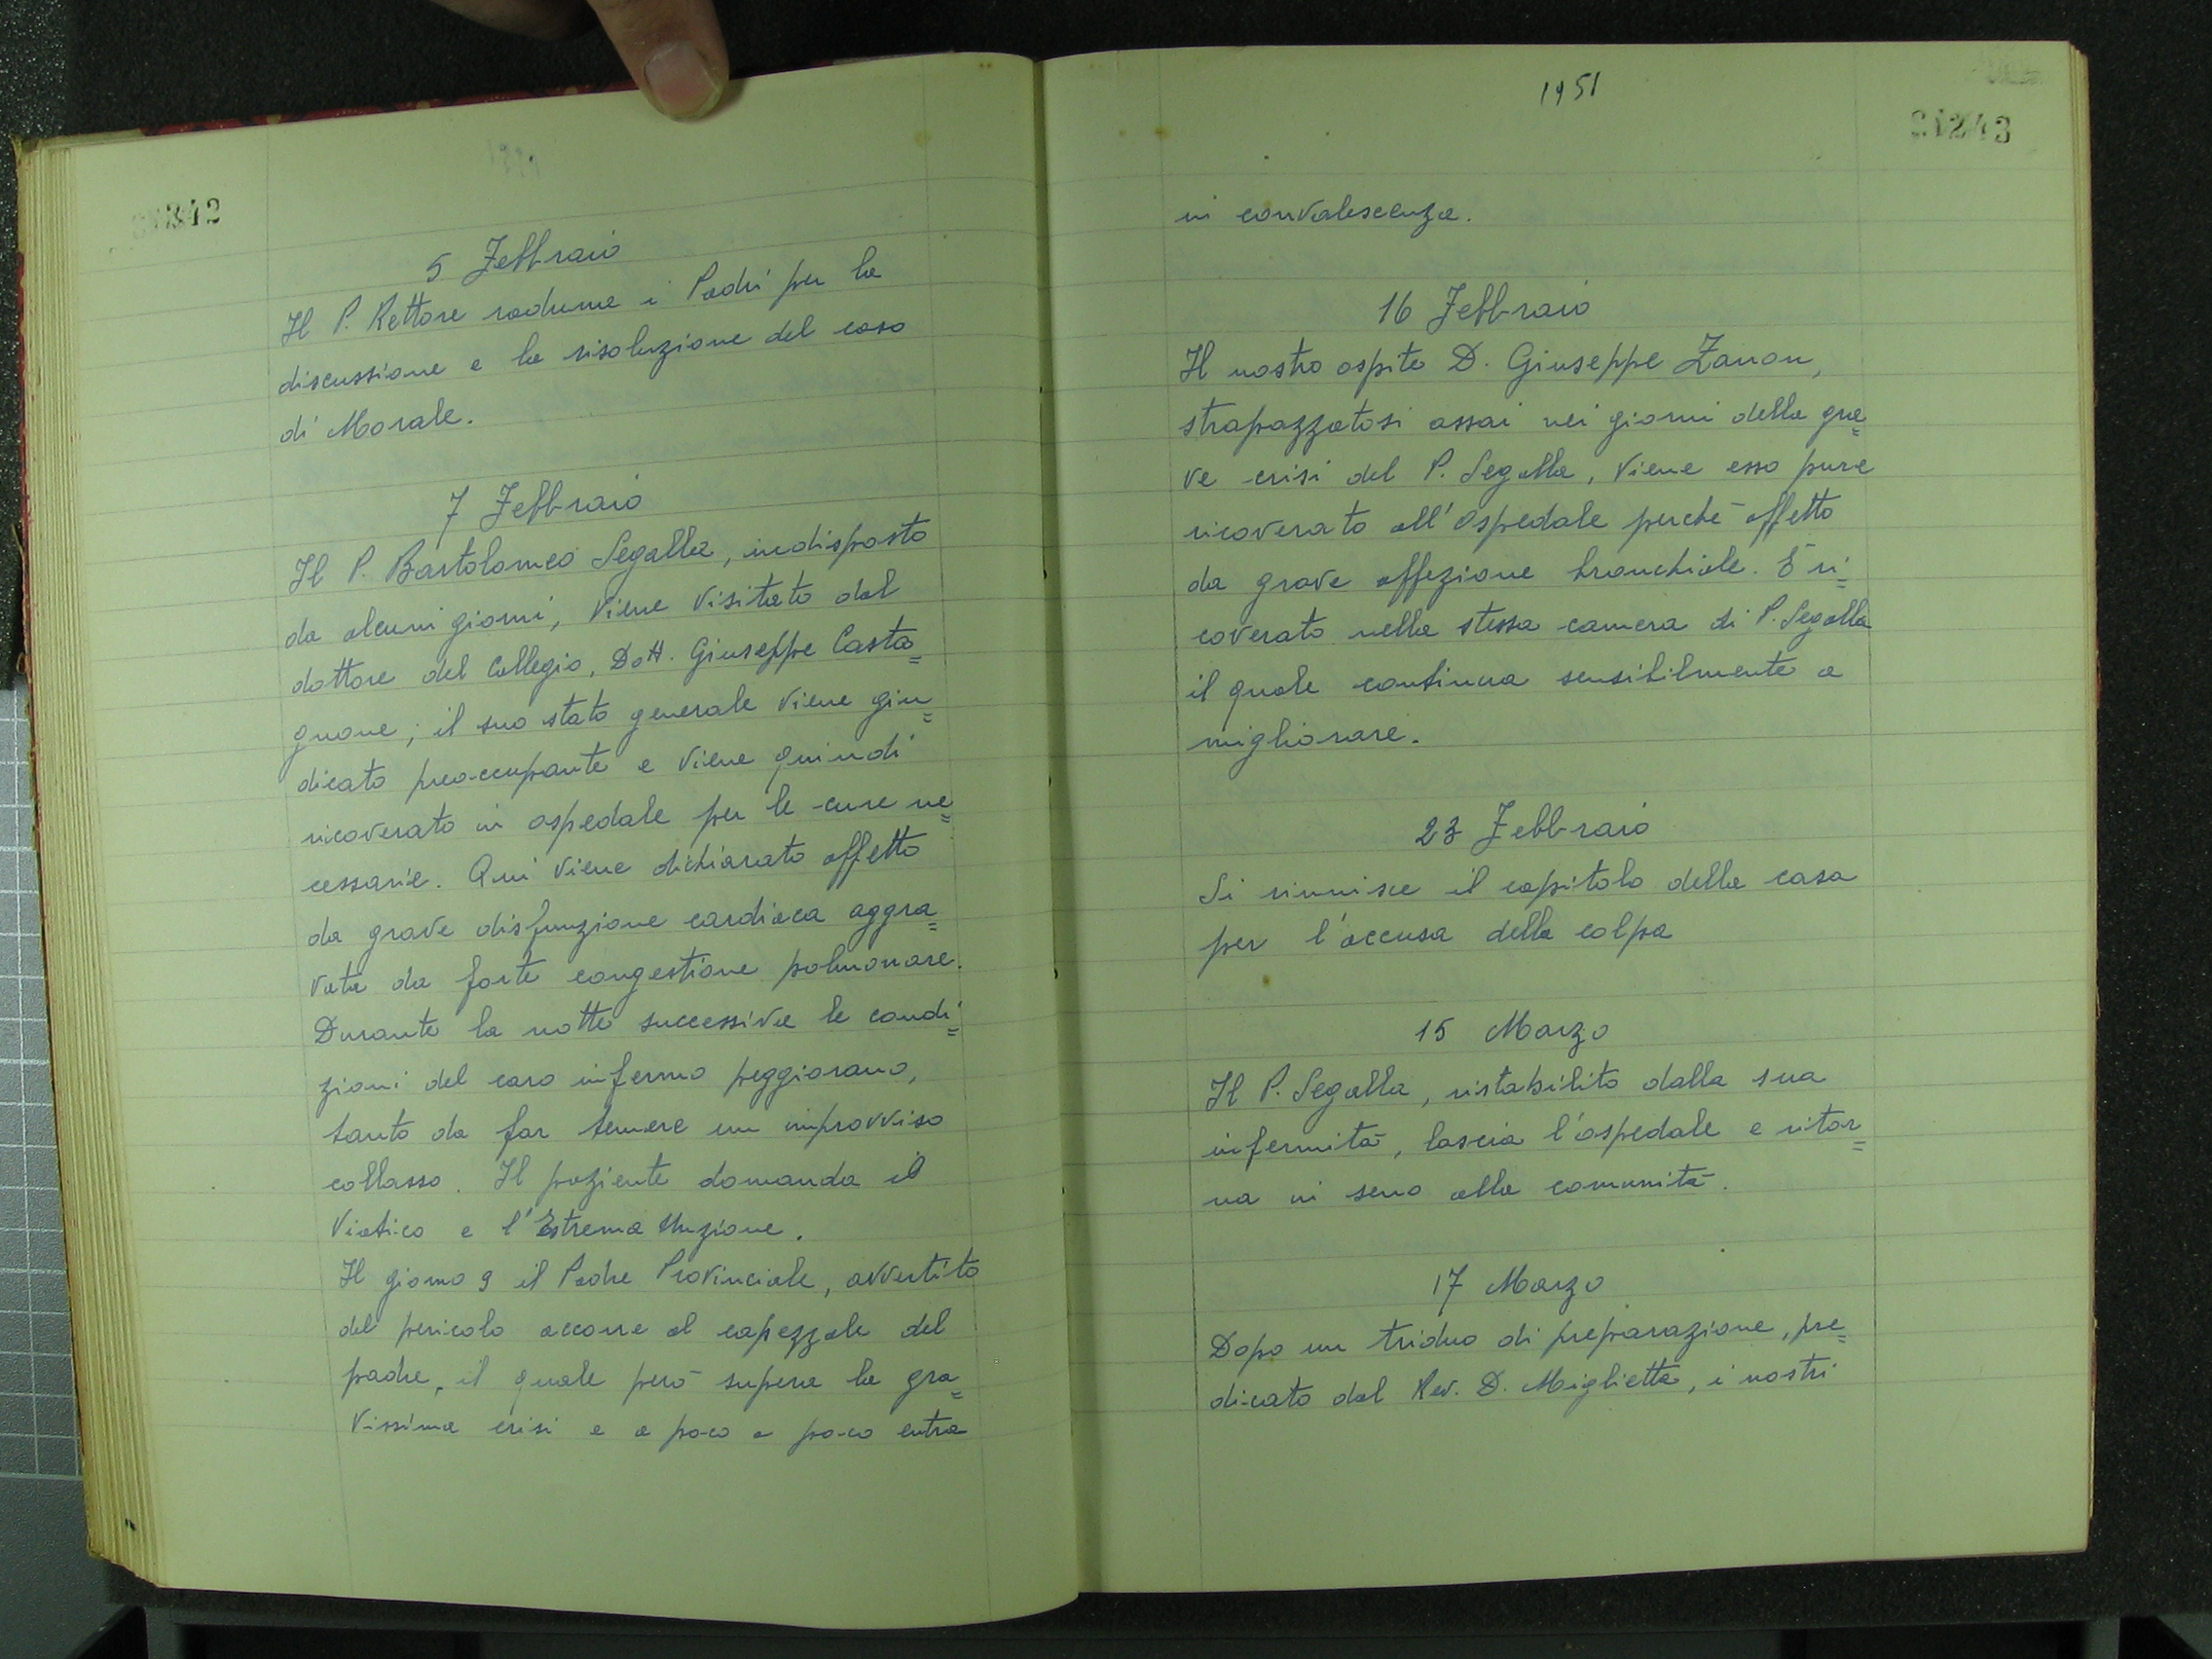 5 Febbraio
Il P. Rettore raduna i Padri per la
discussione e la risoluzione del caso
di Morale.
7 Febbraio
Il P. Bartolomeo Segalla, indisposto
da alcuni giorni, viene visitato dal
dottore del Collegio, Dott. Giuseppe Casta=
gnone; il suo stato generale viene giu=
dicato preoccupante e viene quindi
ricoverato in ospedale per le cure ne=
cessarie. Qui viene dichiarato affetto
da grave disfunzione cardiaca aggra=
vata da forte congestione polmonare.
Durante la notte successiva le condi=
zioni del caro infermo peggiorano,
tanto da far temere un improvviso
collasso. Il paziente domanda il
Viatico e l'Estrema Unzione.
Il giorno 9 il Padre Provinciale, avvertito
del pericolo accorre al capezzale del
padre, il quale però supera la gra=
vissima crisi e a poco a poco entra
1951
in convalescenza.
16 Febbraio
Il nostro ospite D. Giuseppe Zanon,
strapazzatosi assai nei giorni della gra=
ve crisi del P. Segalla, viene esso pure
ricoverato all'ospedale perché affetto
da grave affezione bronchiale. È ri=
coverato nella stessa camera di P. Segalla
il quale continua sensibilmente a
migliorare.
23 Febbraio
Si riunisce il capitolo della casa
per l'accusa della colpa
15 Marzo
Il P. Segalla, ristabilito dalla sua
infermità, lascia l'ospedale e ritor=
na in seno alla comunità.
17 Marzo
Dopo un triduo di preparazione, pre=
dicato dal Rev. D. Miglietta, i nostri